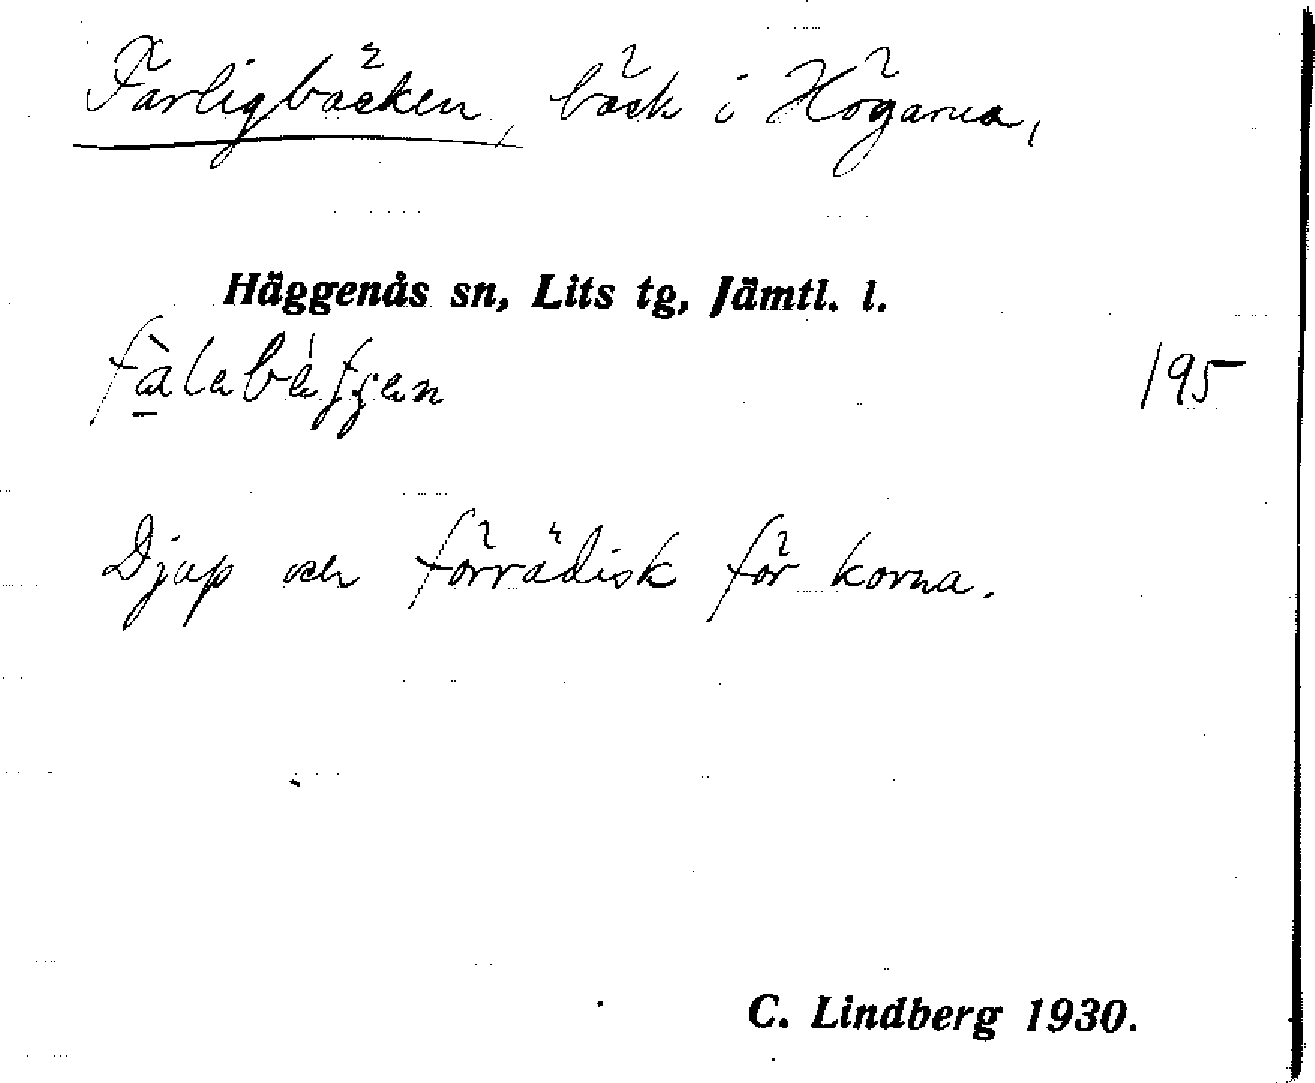 Farligbäcken, bäck i Högarna,
Häggenås sn, Lits tg, Jämtl. l.
195
Djup och förrädisk för korna.
C. Lindberg 1930.